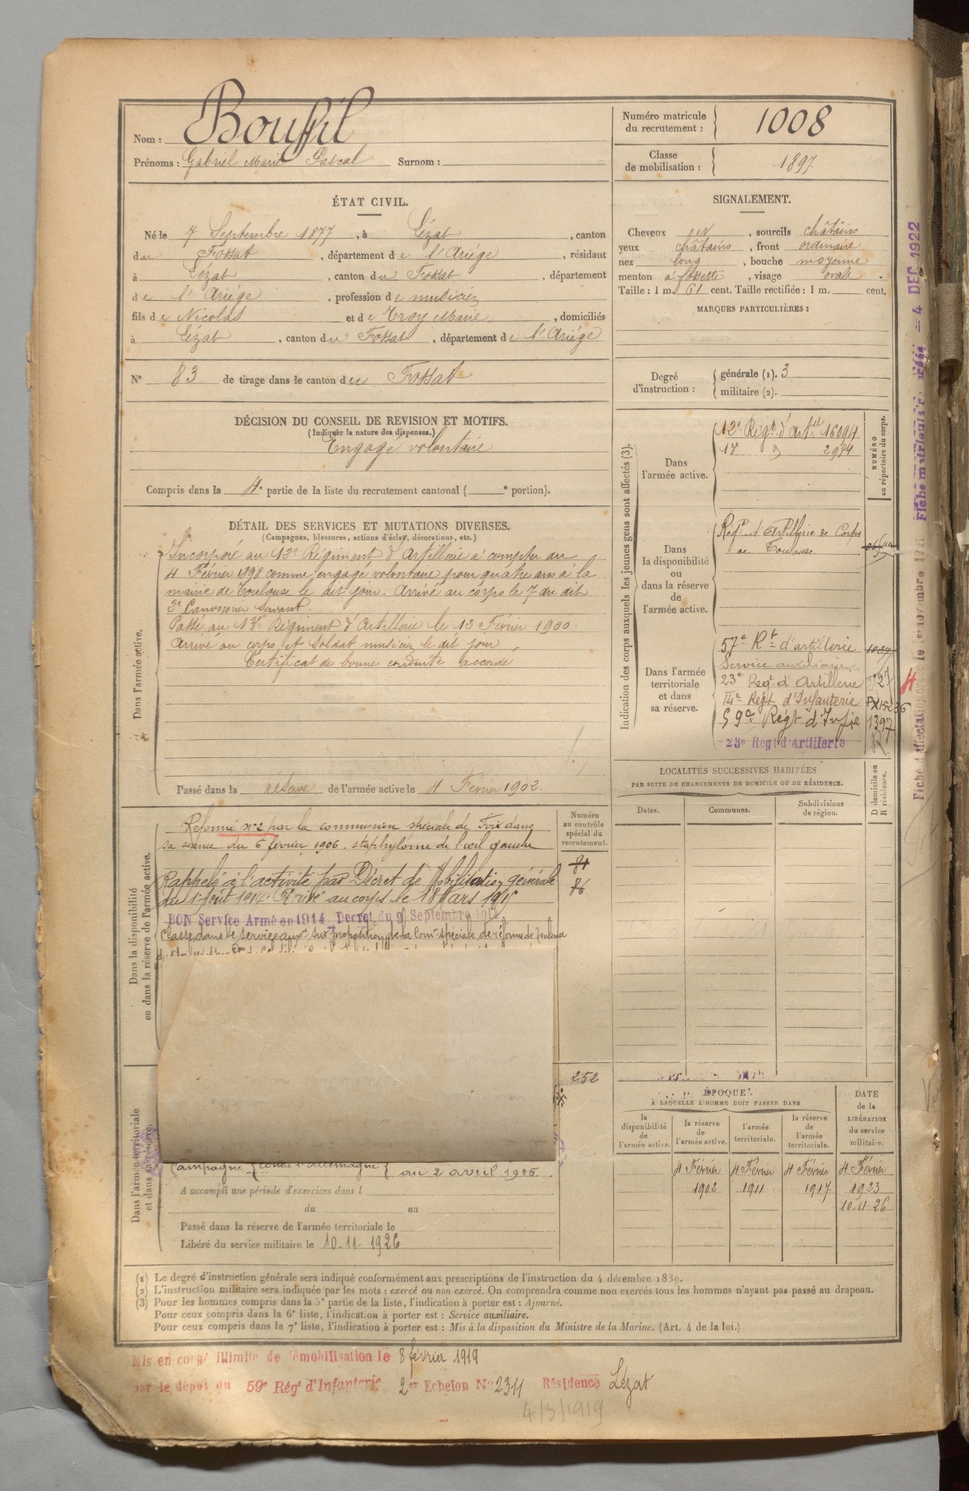 Nom : Boussil
Prénoms : Gabriel Marie Pascal Surnom :
Numéro matricule du recrutement : 1008
Classe de mobilisation : 1897
ÉTAT CIVIL.
Né le 7 Septembre 1877, à Lézat, canton
du Fossat, département de l'Ariége, résidant
à Lézat, canton du Fossat, département
de l'Ariége, profession de musicien
fils de Nicolas et de Troy Marie, domiciliés
à Lézat, canton du Fossat, département de l'Ariége
N° 83 de tirage dans le canton du Fossat
SIGNALEMENT.
Cheveux , sourcils châtains
yeux châtains, front ordinaire
nez long, bouche moyenne
menton à fossette, visage ovale.
Taille : 1 m. 61 cent. Taille rectifiée : 1 m. cent.
MARQUES PARTICULIÈRES :
Degré d'instruction : générale (1). 3
militaire (2).
DÉCISION DU CONSEIL DE REVISION ET MOTIFS.
(Indiquer la nature des dispenses.)
Engagé volontaire
Compris dans la 4e partie de la liste du recrutement cantonal ( e portion).
DÉTAIL DES SERVICES ET MUTATIONS DIVERSES.
(Campagnes, blessures, actions d'éclat, décorations, etc.)
Dans l'armée active.
Incorporé au 12e Régiment d'Artillerie à compter du
4 Février 1898 comme engagé volontaire pour quatre ans à la
mairie de Toulouse le dit jour. Arrivé au corps le 7 du dit
2e Canonnier Servant.
Passé au 17e Régiment d'Artillerie le 13 Février 1900.
Arrivé au corps et Soldat musicien le dit jour
Certificat de bonne conduite accordé
Passé dans la réserve de l'armée active le 4 Février 1902.
Indication des corps auxquels les jeunes gens sont affectés (3).
NUMÉRO au répertoire du corps.
Dans l'armée active.
12e Régt d'Artie 16094
17e " 2984
Dans la disponibilité ou dans la réserve de l'armée active.
Regt d'Artillerie de Corps
de Toulouse
Dans l'armée territoriale et dans sa réserve.
57e Rt d'artillerie
Service auxiliaire.
23e Régt d'Artillerie
14e Régt d'Infanterie
59e Régt d'Infie 1397
23e Regt d'Artillerie
LOCALITÉS SUCCESSIVES HABITÉES
PAR SUITE DE CHANGEMENTS DE DOMICILE OU DE RÉSIDENCE.
Dates. Communes. Subdivisions de région. D domicile ou R résidence.
Dans la disponibilité ou dans la réserve de l'armée active.
Réformé n° 2 par la commission spéciale de Foix dans
sa séance du 6 février 1906. staphylome de l'œil gauche
Rappelé à l'activité par Décret de Mobilisation générale
du 1er Août 1914. Arrivé au corps le 18 Mars 1915
BON Service Armé en 1914 Décret du 9 Septembre 1914
Classé dans le service auxre sur proposition de la Comon spéciale de réforme de Toulouse
Numéro au contrôle spécial du recrutement.
84
86
252
ÉPOQUE
À LAQUELLE L'HOMME DOIT PASSER DANS
la disponibilité de l'armée active. la réserve de l'armée active. l'armée territoriale. la réserve de l'armée territoriale. DATE de la LIBÉRATION du service militaire.
4 Février 1902 4 Février 1911 4 Février 1917 4 Février 1923
10 11 26
Dans l'armée territoriale et dans sa réserve.
Campagne { contre l'Allemagne } au 2 avril 1926
A accompli une période d'exercices dans l
du au
Passé dans la réserve de l'armée territoriale le
Libéré du service militaire le 10-11-1926
(1) Le degré d'instruction générale sera indiqué conformément aux prescriptions de l'instruction du 4 décembre 1889.
(2) L'instruction militaire sera indiquée par les mots : exercé ou non exercé. On comprendra comme non exercés tous les hommes n'ayant pas passé au drapeau.
(3) Pour les hommes compris dans la 5e partie de la liste, l'indication à porter est : Ajourné.
Pour ceux compris dans la 6e liste, l'indication à porter est : Service auxiliaire.
Pour ceux compris dans la 7e liste, l'indication à porter est : Mis à la disposition du Ministre de la Marine. (Art. 4 de la loi.)
Mis en congé illimité de démobilisation le 8 février 1919
par le dépôt du 59e Rég' d'Infanterie 2er Echelon N° 2311 Résidence Lézat
4/3/1919
4 DEC 1922